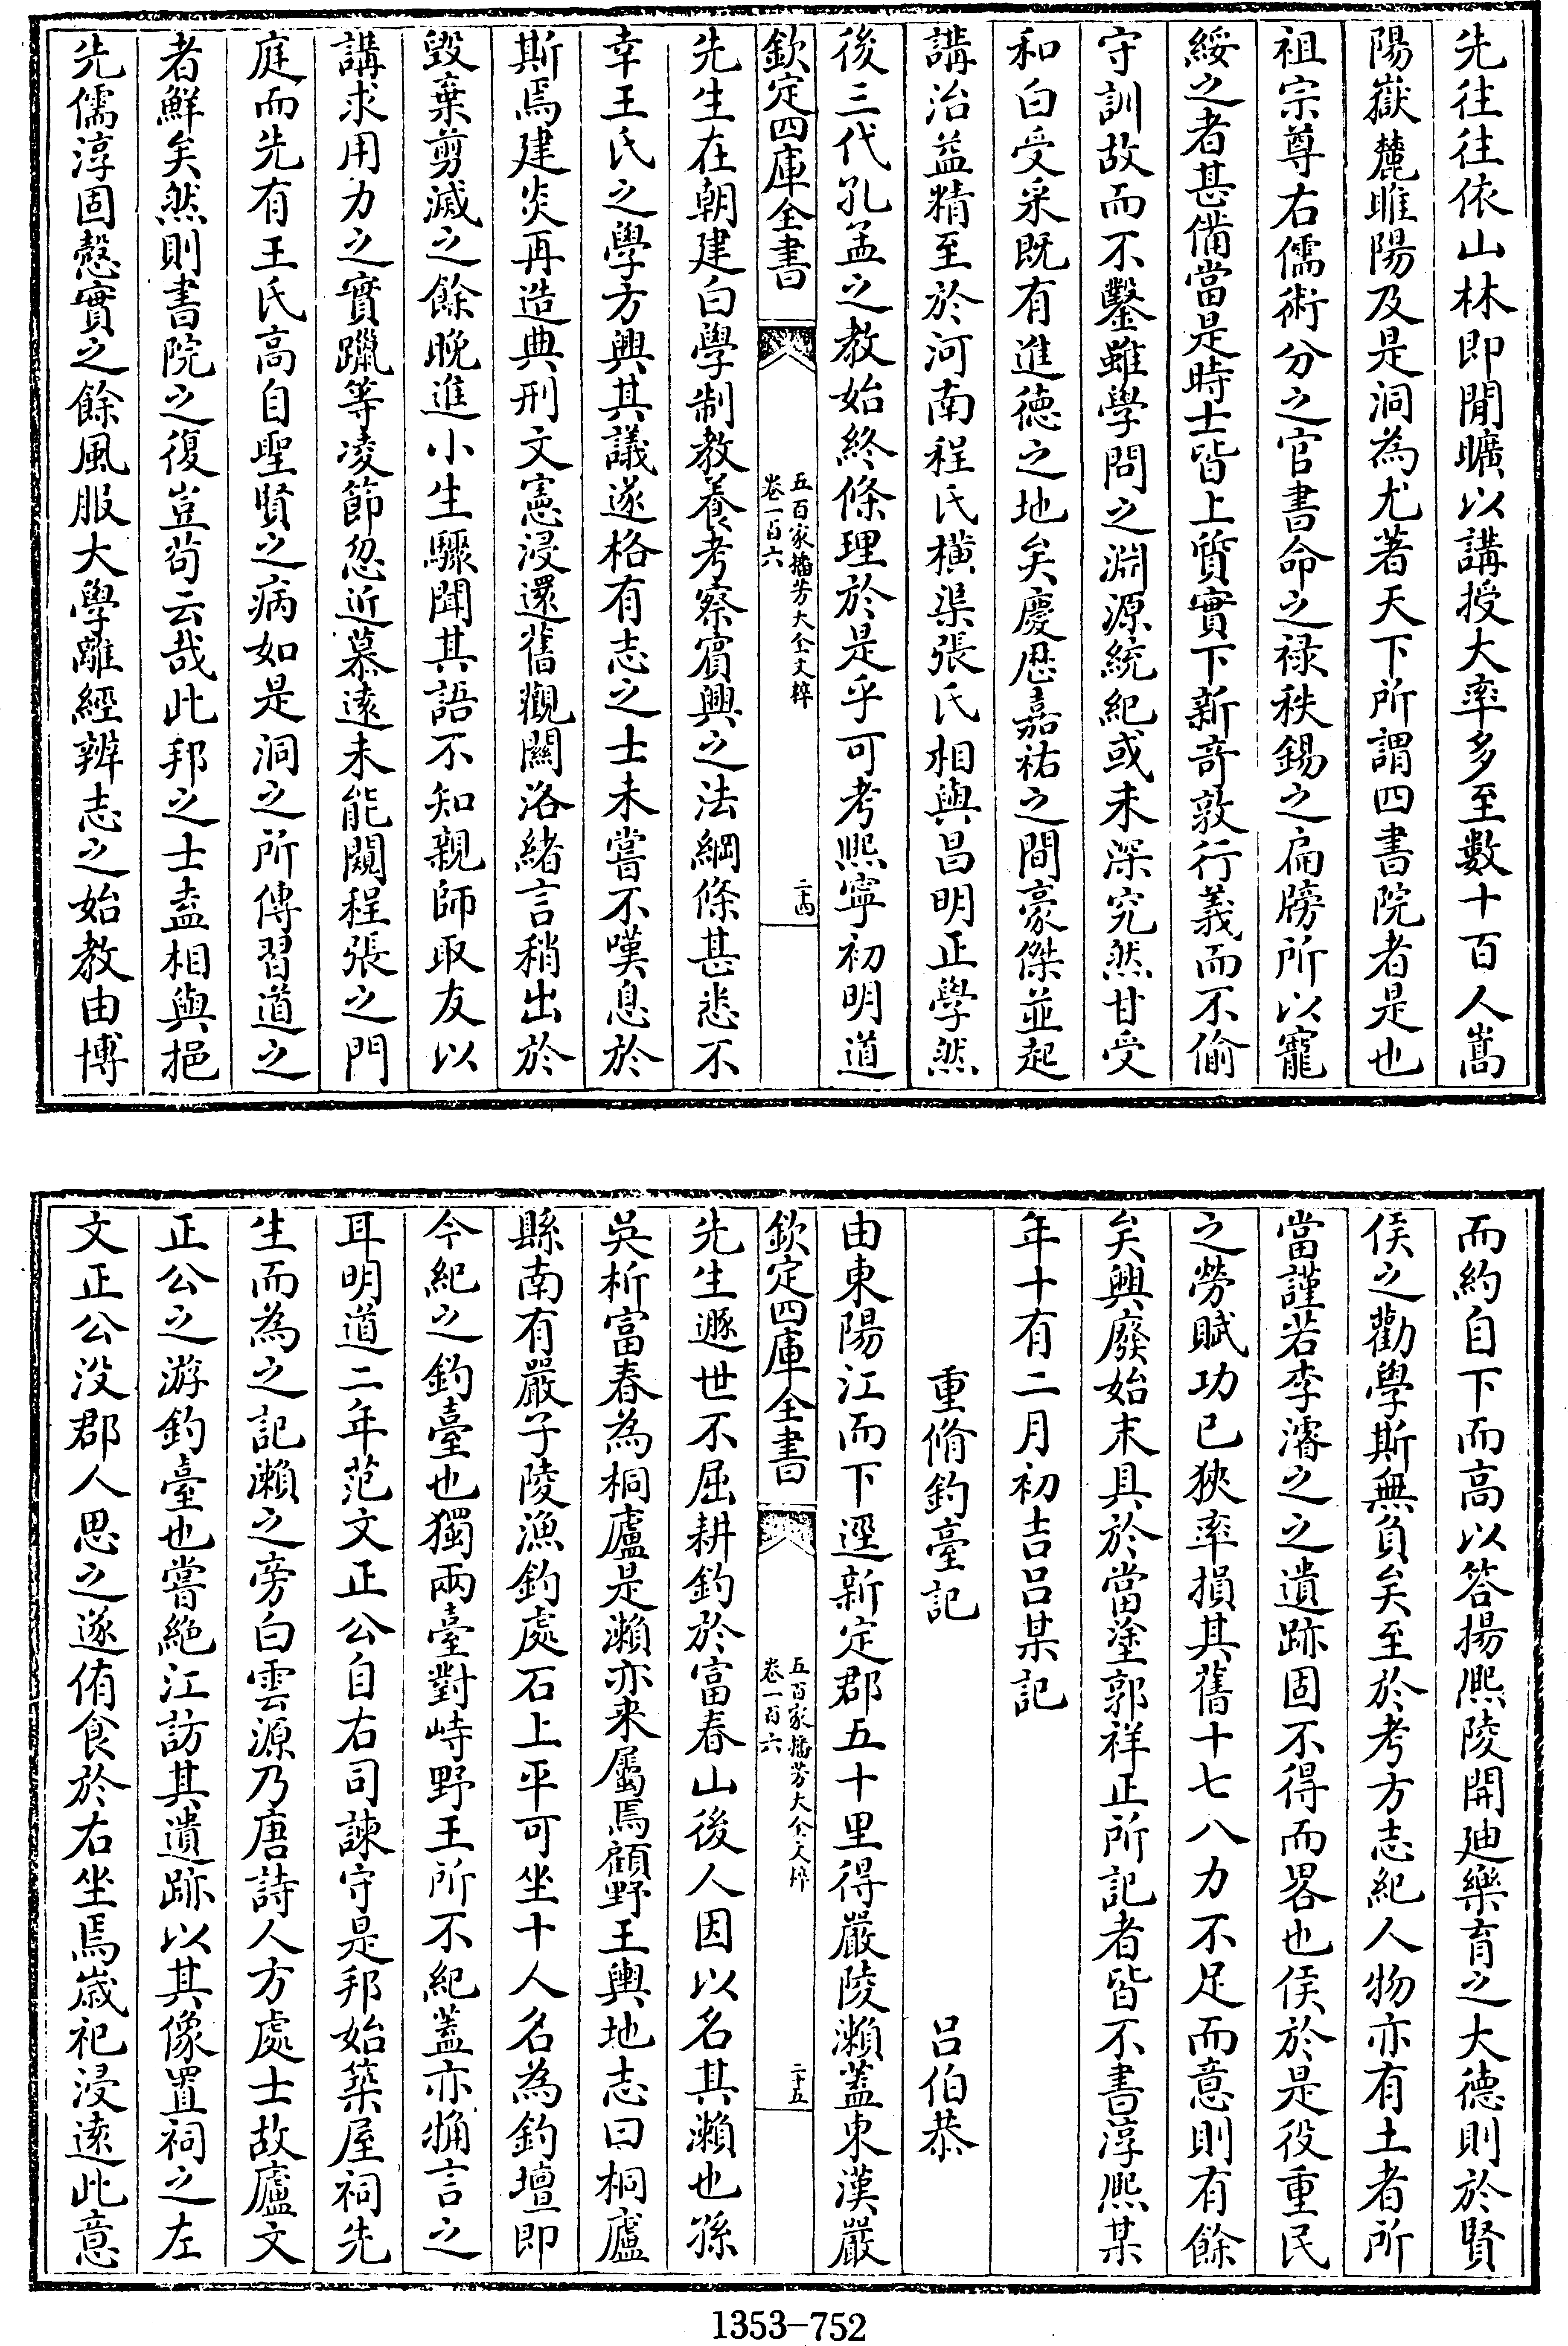 先往往依山林即閒曠以講授大率多至數十百人嵩
陽嶽麓睢陽及是洞為尤著天下所謂四書院者是也
祖宗尊右儒術分之官書命之禄秩錫之扁牓所以寵
綏之者甚備當是時士皆上質實下新竒敦行義而不偷
守訓故而不鑿雖學問之淵源統紀或未深究然甘受
和白受采既有進徳之地矣慶厯嘉祐之間豪傑並起
講治益精至於河南程氏橫渠張氏相與昌明正學然
後三代孔孟之教始終條理於是乎可考熙寧初明道
欽定四庫全書
五百家播芳大全文粹
卷一百六
二十四
先生在朝建白學制教養考察賓興之法綱條甚悉不
幸王氏之學方興其議遂格有志之士未嘗不嘆息於
斯焉建炎再造典刑文憲浸還舊觀關洛緒言稍出於
毀棄剪滅之餘晚進小生驟聞其語不知親師取友以
講求用力之實躐等凌節忽近慕逺未能闚程張之門
庭而先有王氏高自聖賢之病如是洞之所傳習道之
者鮮矣然則書院之復豈茍云哉此邦之士盍相與挹
先儒淳固慤實之餘風服大學離經辨志之始教由博
而約自下而高以答揚熙陵開廸樂育之大德則於賢
侯之勸學斯無負矣至於考方志紀人物亦有土者所
當謹若李濬之之遺跡固不得而畧也侯於是役重民
之勞賦功已狹率損其舊十七八力不足而意則有餘
矣興廢始末具於當塗郭祥正所記者皆不書淳熙某
年十有二月初吉吕某記
重脩釣臺記
吕伯恭
由東陽江而下逕新定郡五十里得嚴陵瀨蓋東漢嚴
欽定四庫全書
五百家播芳大全文粹
卷一百六
二十五
先生遯世不屈耕釣於富春山後人因以名其瀨也孫
吳析富春為桐廬是瀨亦来屬焉顧野王輿地志曰桐廬
縣南有嚴子陵漁釣處石上平可坐十人名為釣壇即
今紀之釣臺也獨兩臺對峙野王所不紀蓋亦觕言之
耳明道二年范文正公自右司諫守是邦始築屋祠先
生而為之記瀨之旁白雲源乃唐詩人方處士故廬文
正公之游釣臺也嘗絶江訪其遺跡以其像置祠之左
文正公没郡人思之遂侑食於右坐焉歳祀浸逺此意
1353-752